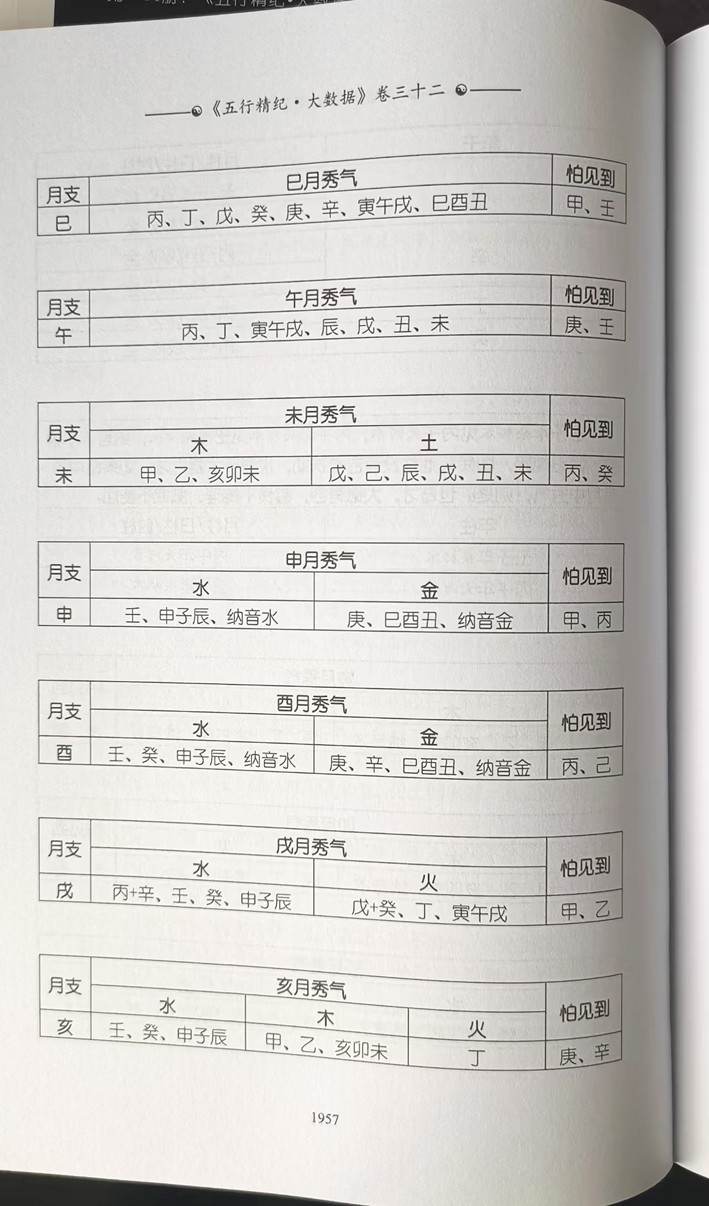 《五行精纪·大数据》卷三十二
月支 巳月秀气 怕见到
巳 丙、丁、戊、癸、庚、辛、寅午戌、巳酉丑 甲、壬
月支 午月秀气 怕见到
午 丙、丁、寅午戌、辰、戌、丑、未 庚、壬
月支 未月秀气 怕见到
木 土
未 甲、乙、亥卯未 戊、己、辰、戌、丑、未 丙、癸
月支 申月秀气 怕见到
水 金
申 壬、申子辰、纳音水 庚、巳酉丑、纳音金 甲、丙
月支 酉月秀气 怕见到
水 金
酉 壬、癸、申子辰、纳音水 庚、辛、巳酉丑、纳音金 丙、己
月支 戌月秀气 怕见到
水 火
戌 丙+辛、壬、癸、申子辰 戊+癸、丁、寅午戌 甲、乙
月支 亥月秀气 怕见到
水 木 火
亥 壬、癸、申子辰 甲、乙、亥卯未 丁 庚、辛
1957